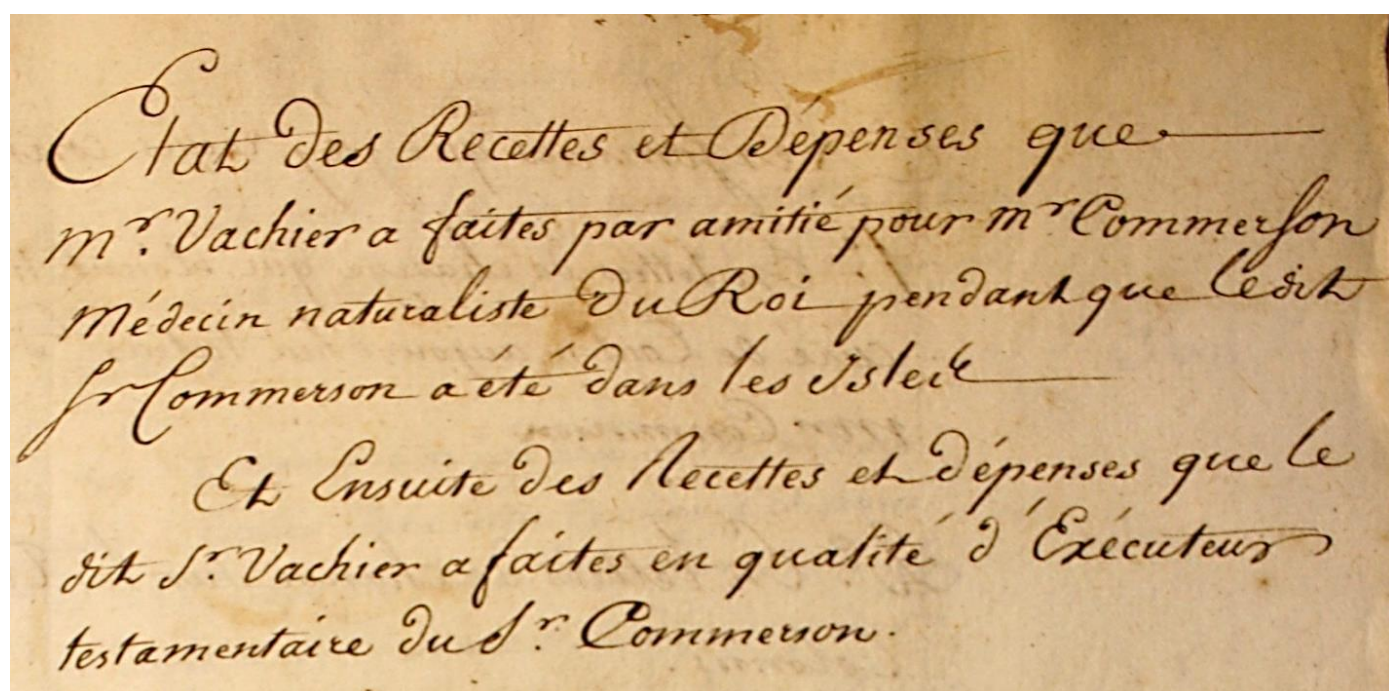 Etat des Recettes et Dépenses que
mr. Vachier a faites par amitié pour mr Commerson
Médecin naturaliste du Roi pendant que ledit
Sr Commerson a été dans les Isles
Et Ensuite des Recettes et dépenses que le
dit Sr. Vachier a faites en qualité d'Exécuteur
testamentaire du Sr. Commerson.